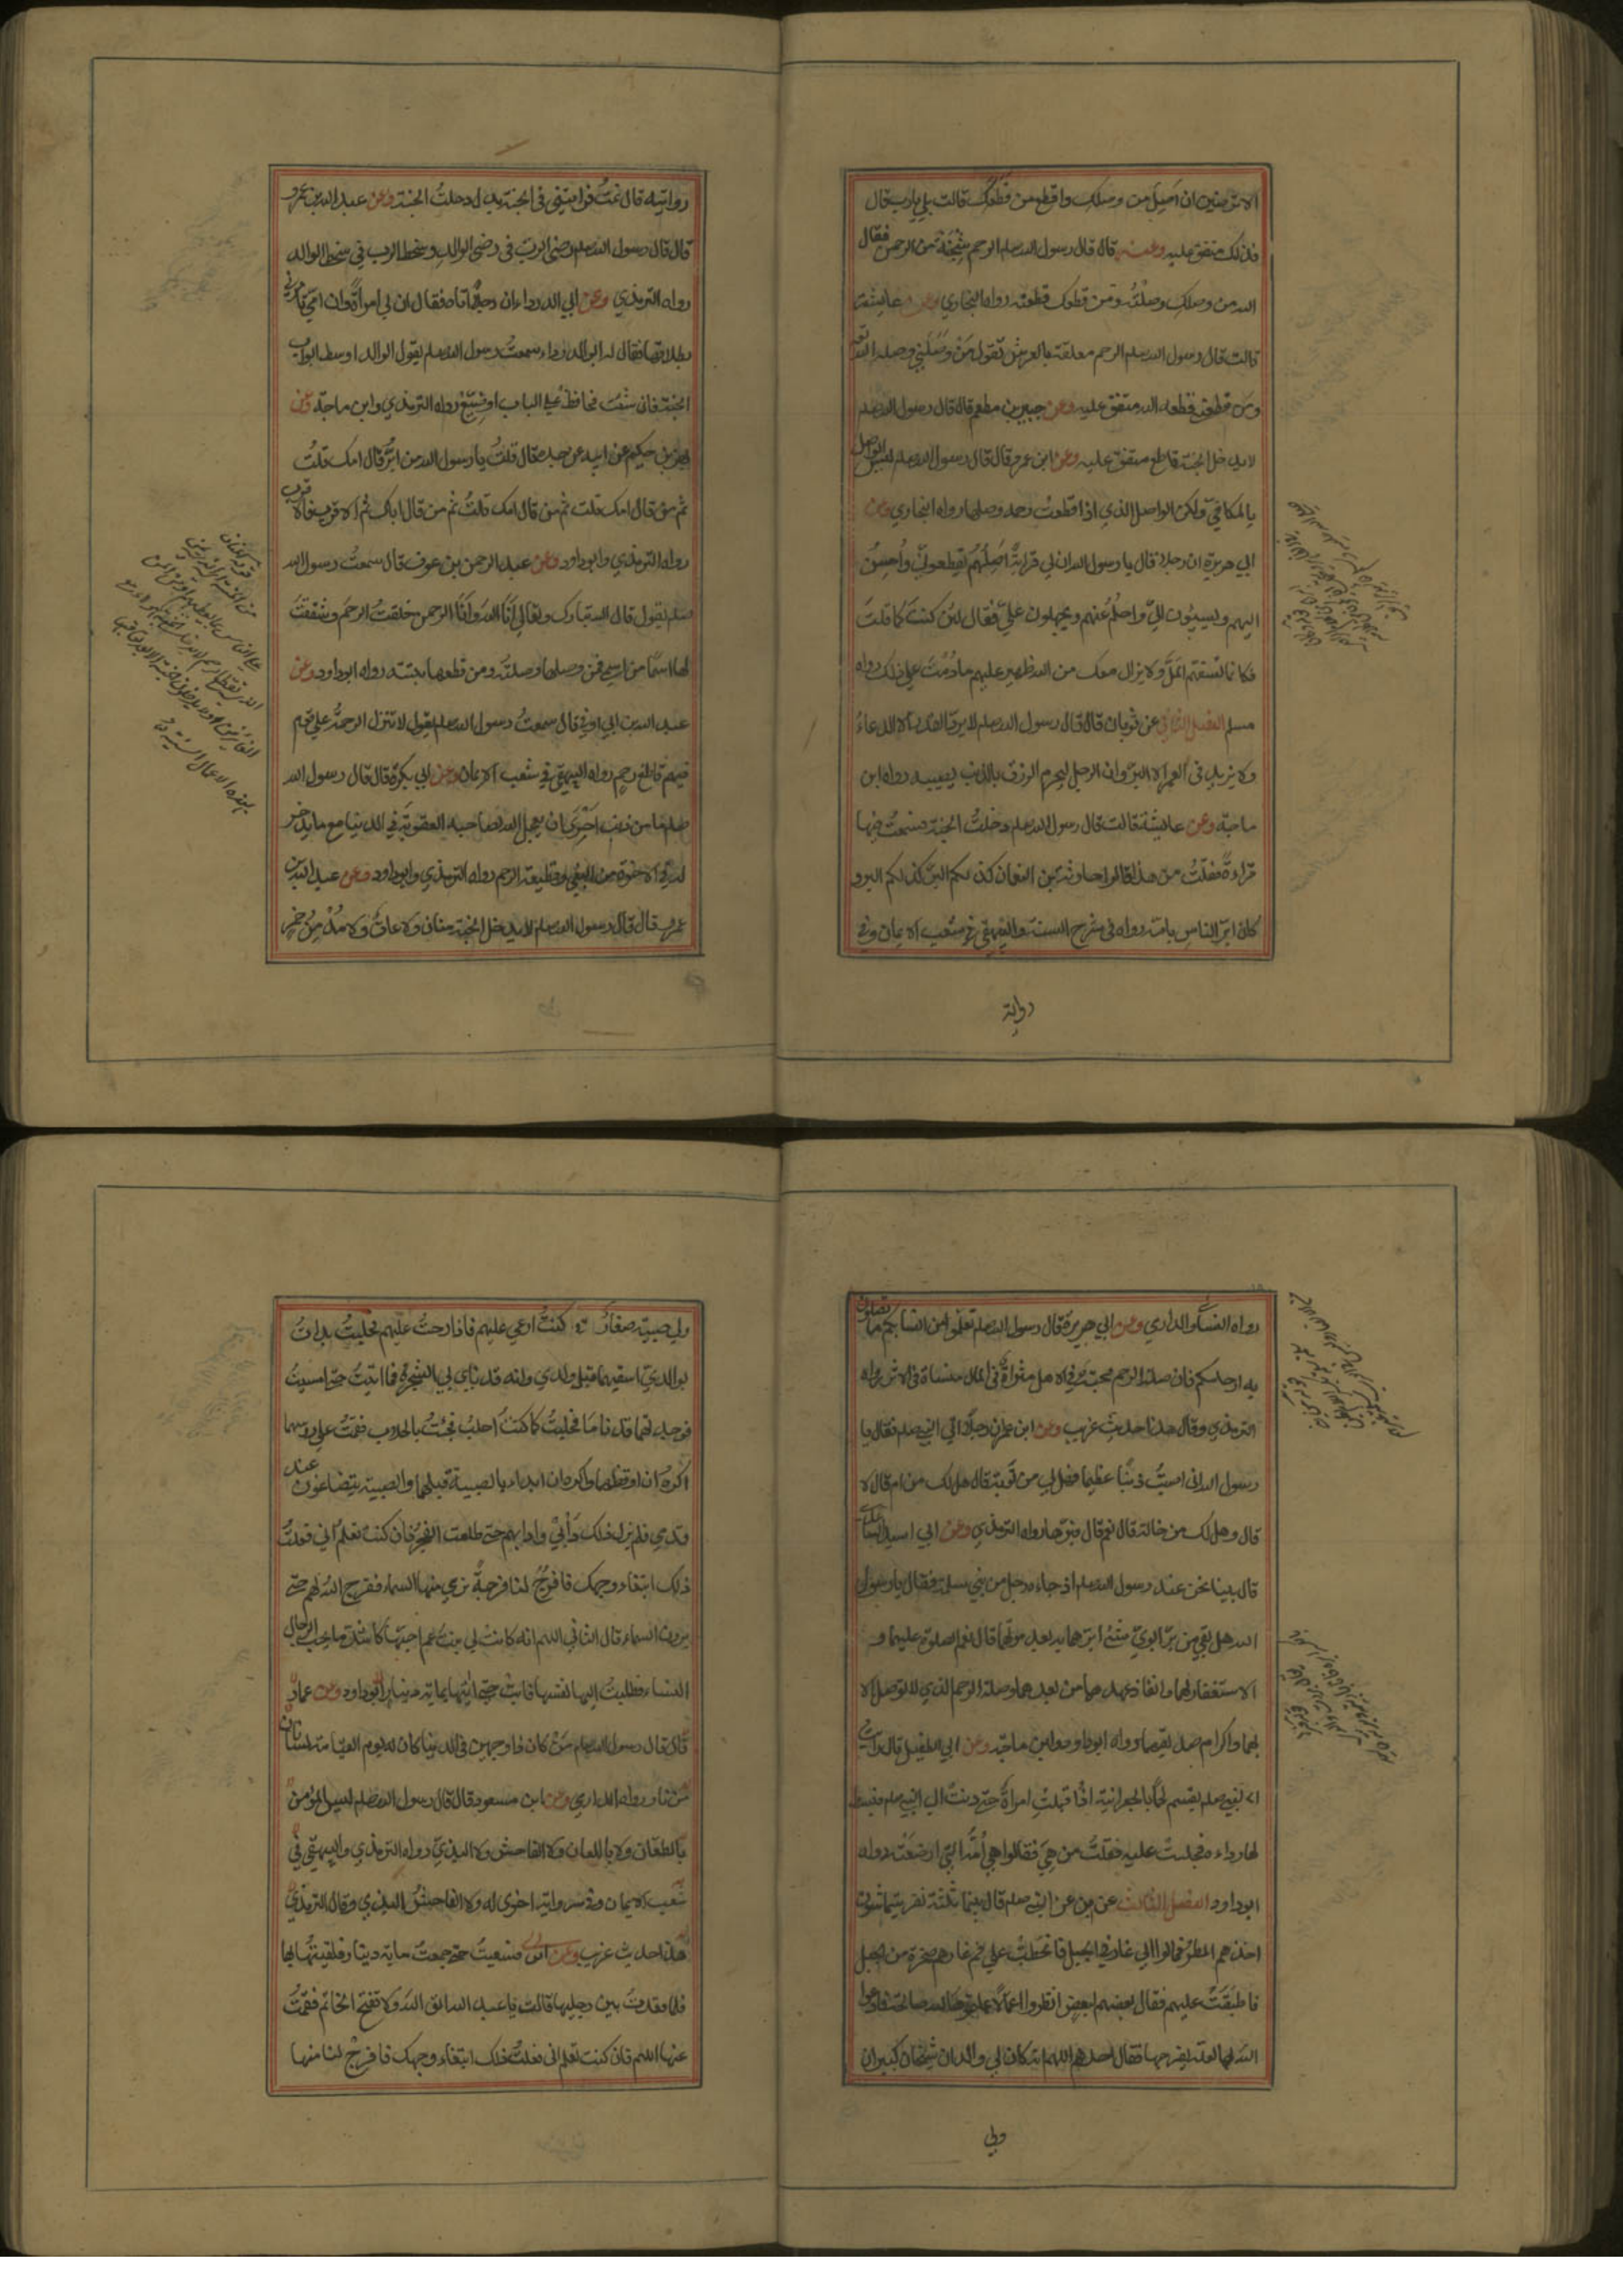 الا ترضين ان اصل من وصلك واقطع من قطعك قالت بلي يا رب قال
فذلك متفق عليه وعنه قال قال رسول الله صلعم الرحم شجنة من الرحمن فقال
الله من وصلك وصلته ومن قطعك قطعته رواه البخاري وعن عايشة
قالت قال رسول الله صلعم الرحم معلقة بالعرش تقول من وصلني وصله الله
ومن قطعني قطعه الله متفق عليه وعن جبير بن مطعم قال قال رسول الله صلعم
لا يدخل الجنة قاطع متفق عليه وعن ابن عمرو قال قال رسول الله صلعم ليس الواصل
بالمكافي ولكن الواصل الذي اذا قطعت رحمه وصلها رواه البخاري وعن
ابي هريرة ان رجلا قال يا رسول الله ان لي قرابة اصلهم ويقطعوني واحسن
اليهم ويسيؤن الي واحلم عنهم ويجهلون علي فقال لئن كنت كما قلت
فكانما تسفهم المل ولا يزال معك من الله ظهير عليهم ما دمت علي ذلك رواه
مسلم الفصل الثاني عن ثوبان قال قال رسول الله صلعم لا يرد القدر الا الدعاء
ولا يزيد في العمر الا البر وان الرجل ليحرم الرزق بالذنب يصيبه رواه ابن
ماجة وعن عايشة قالت قال رسول الله صلعم دخلت الجنة فسمعت فيها
قراءة فقلت من هذا قالوا حارثة بن النعمان كذلكم البر كذلكم البر و
كان ابر الناس بامه رواه في شرح السنة والبيهقي في شعب الايمان وفي
رواية
روايته قال نمت فرايتني في الجنة بدل دخلت الجنة وعن عبد الله بن عمرو
قال قال رسول الله صلعم رضى الرب في رضى الوالد وسخط الرب في سخط الوالد
رواه الترمذي وعن ابي الدرداء ان رجلا اتاه فقال ان لي امراة وان امي تامرني
بطلاقها فقال له ابو الدرداء سمعت رسول الله صلعم يقول الوالد اوسط ابواب
الجنة فان شئت فحافظ علي الباب او ضيع رواه الترمذي وابن ماجة وعن
بهز بن حكيم عن ابيه عن جده قال قلت يا رسول الله من ابر قال امك قلت
ثم من قال امك قلت ثم من قال امك قلت ثم من قال اباك ثم الاقرب فالاقرب
رواه الترمذي وابو داود وعن عبد الرحمن بن عوف قال سمعت رسول الله
صلعم يقول قال الله تبارك وتعالي انا الله وانا الرحمن خلقت الرحم وشققت
لها اسما من اسمي فمن وصلها وصلته ومن قطعها بتته رواه ابو داود وعن
عبد الله بن ابي اوفي قال سمعت رسول الله صلعم يقول لا تنزل الرحمة علي قوم
فيهم قاطع رحم رواه البيهقي في شعب الايمان وعن ابي بكرة قال قال رسول الله
صلعم ما من ذنب احري ان يعجل الله لصاحبه العقوبة في الدنيا مع ما يدخر
له في الاخرة من البغي وقطيعة الرحم رواه الترمذي وابو داود وعن عبد الله بن
عمرو قال قال رسول الله صلعم لا يدخل الجنة منان ولا عاق ولا مدمن خمر
رواه النسائي والدارمي وعن ابي هريرة قال رسول الله صلعم تعلموا من انسابكم ما تصلون
به ارحامكم فان صلة الرحم محبة في الاهل مثراة في المال منساة في الاثر رواه
الترمذي وقال هذا حديث غريب وعن ابن عمر ان رجلا اتي النبي صلعم فقال يا
رسول الله اني اصبت ذنبا عظيما فهل لي من توبة قال هل لك من ام قال لا
قال وهل لك من خالة قال نعم قال فبرها رواه الترمذي وعن ابي اسيد الساعدي
قال بينا نحن عند رسول الله صلعم اذ جاءه رجل من بني سلمة فقال يا رسول
الله هل بقي من بر ابوي شئ ابرهما به بعد موتهما قال نعم الصلوة عليهما و
الاستغفار لهما وانفاذ عهدهما من بعدهما وصلة الرحم الذي لا توصل الا
بهما واكرام صديقهما رواه ابو داود وابن ماجة وعن ابي الطفيل قال رايت
النبي صلعم يقسم لحما بالجعرانة اذ اقبلت امراة حتي دنت الي النبي صلعم فبسط
لها رداءه فجلست عليه فقلت من هي فقالوا هي امه التي ارضعته رواه
ابو داود الفصل الثالث عن ابن عمر عن النبي صلعم قال بينما ثلثة نفر يتماشون
اخذهم المطر فمالوا الي غار في الجبل فانحطت علي فم غارهم صخرة من الجبل
فاطبقت عليهم فقال بعضهم لبعض انظروا اعمالا عملتموها لله صالحة فادعوا
الله بها لعله يفرجها فقال احدهم اللهم انه كان لي والدان شيخان كبيران
ولي
ولي صبية صغار كنت ارعي عليهم فاذا رحت عليهم فحلبت بدات
بوالدي اسقيهما قبل ولدي وانه قد ناي بي الشجر فما اتيت حتي امسيت
فوجدتهما قد ناما فحلبت كما كنت احلب فجئت بالحلاب فقمت علي رؤسهما
اكره ان اوقظهما واكره ان ابدا بالصبية قبلهما والصبية يتضاغون عند
قدمي فلم يزل ذلك دأبي ودابهم حتي طلعت الفجر فان كنت تعلم اني فعلت
ذلك ابتغاء وجهك فافرج لنا فرجة نري منها السماء ففرج الله لهم حتي
يرون السماء قال الثاني اللهم انه كانت لي بنت عم احبها كاشد ما يحب الرجال
النساء فطلبت اليها نفسها فابت حتي اتيتها بماية دينار ابو داود وعن عمار
قال قال رسول الله صلعم من كان ذا وجهين في الدنيا كان له يوم القيامة لسانان
من نار رواه الدارمي وعن ابن مسعود قال قال رسول الله صلعم ليس المؤمن
بالطعان ولا باللعان ولا الفاحش ولا البذي رواه الترمذي والبيهقي في
شعب الايمان وفي رواية اخرى له ولا الفاحش البذي وقال الترمذي
هذا حديث غريب وعن فسعيت حتي جمعت ماية دينار فلقيتها بها
فلما قعدت بين رجليها قالت يا عبد الله اتق الله ولا تفتح الخاتم فقمت
عنها اللهم فان كنت تعلم اني فعلت ذلك ابتغاء وجهك فافرج لنا منها